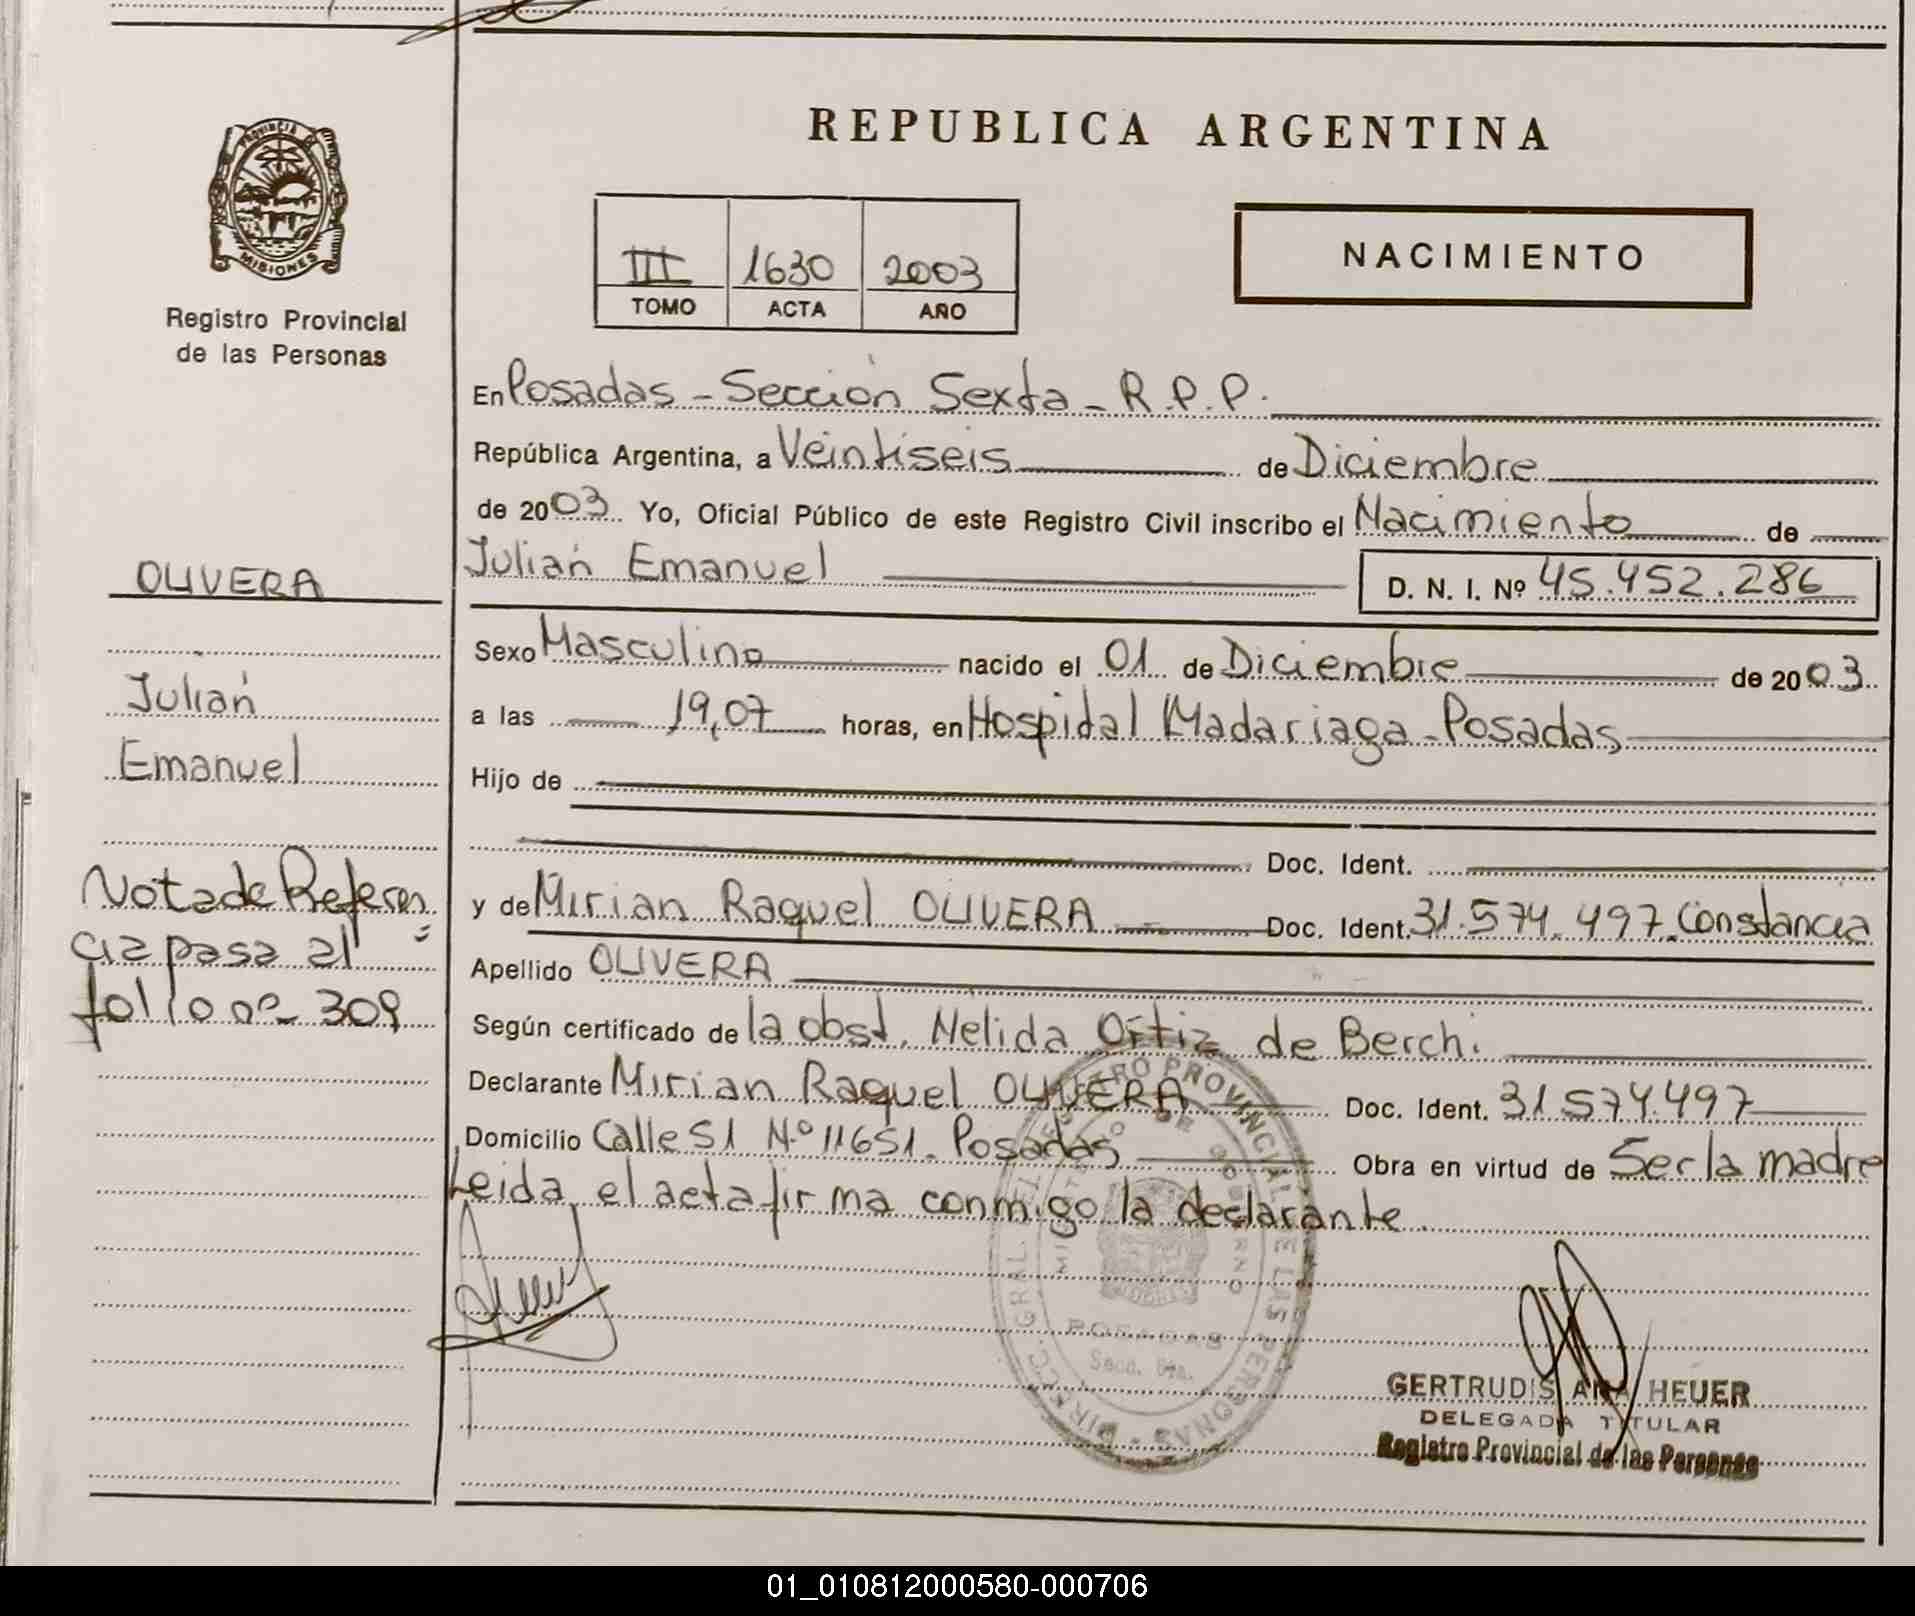 REPUBLICA ARGENTINA
PROVINCIA DE
MISIONES
Registro Provincial
de las Personas
III 1630 2003
TOMO ACTA AÑO
NACIMIENTO
En Posadas - Sección Sexta - R.P.P.
República Argentina, a Veintiseis de Diciembre
de 2003. Yo, Oficial Público de este Registro Civil inscribo el Nacimiento de
Julián Emanuel D. N. I. Nº 45.452.286
Sexo Masculino nacido el 01 de Diciembre de 2003
a las 19,07 horas, en Hospidal Madariaga - Posadas
Hijo de
Doc. Ident.
y de Mirian Raquel OLIVERA Doc. Ident. 31.574.497. Constancia
Apellido OLIVERA
Según certificado de la obst. Nelida Ortiz de Berchi
Declarante Mirian Raquel OLIVERA Doc. Ident. 31574.497
Domicilio Calle 51 N.º 11651. Posadas Obra en virtud de Ser la madre
Leida el acta firma conmigo la declarante.
OLIVERA
Julián
Emanuel
Nota de Referen
cia pasa al
folio nº 309
DIRECC. GRAL. REGISTRO PROVINCIAL DE LAS PERSONAS
MINISTERIO DE GOBIERNO
POSADAS
Secc. 6ta.
GERTRUDIS ANA HEUER
DELEGADA TITULAR
Registro Provincial de las Personas
01_010812000580-000706